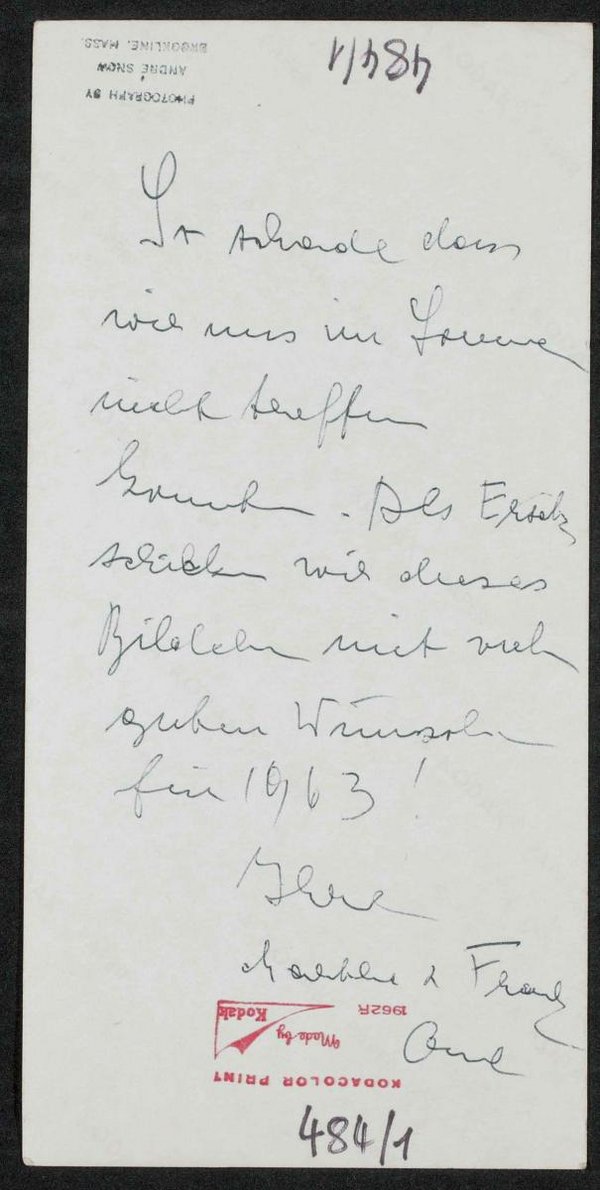 PHOTOGRAPH BY
ANDRÉ SNOW
BROOKLINE, MASS.
484/1
So schade dass
wir uns im Sommer
nicht treffen
konnten. Als Ersatz
schicken wir dieses
Bildchen mit vielen
guten Wünschen
für 1963!
Ihre
& Frank
KODACOLOR PRINT
Made by
Kodak
1962R
484/1